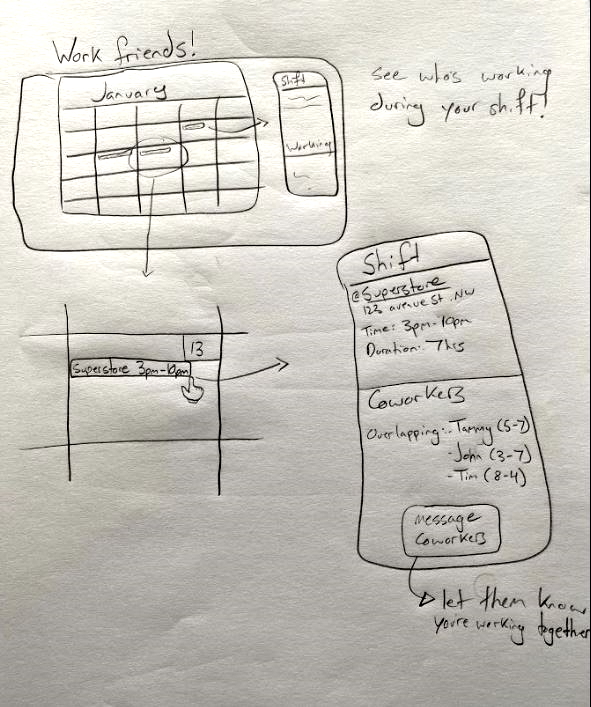 Work friends!
see who's working
during your shift!
January
Shift
Working
13
Superstore 3pm-10pm
Shift
@Superstore
123 avenue St. NW
Time: 3pm-10pm
Duration: 7hrs
Coworkers
Overlapping: - Tammy (5-7)
- John (3-7)
- Tim (8-4)
message
Coworkers
let them know
you're working together